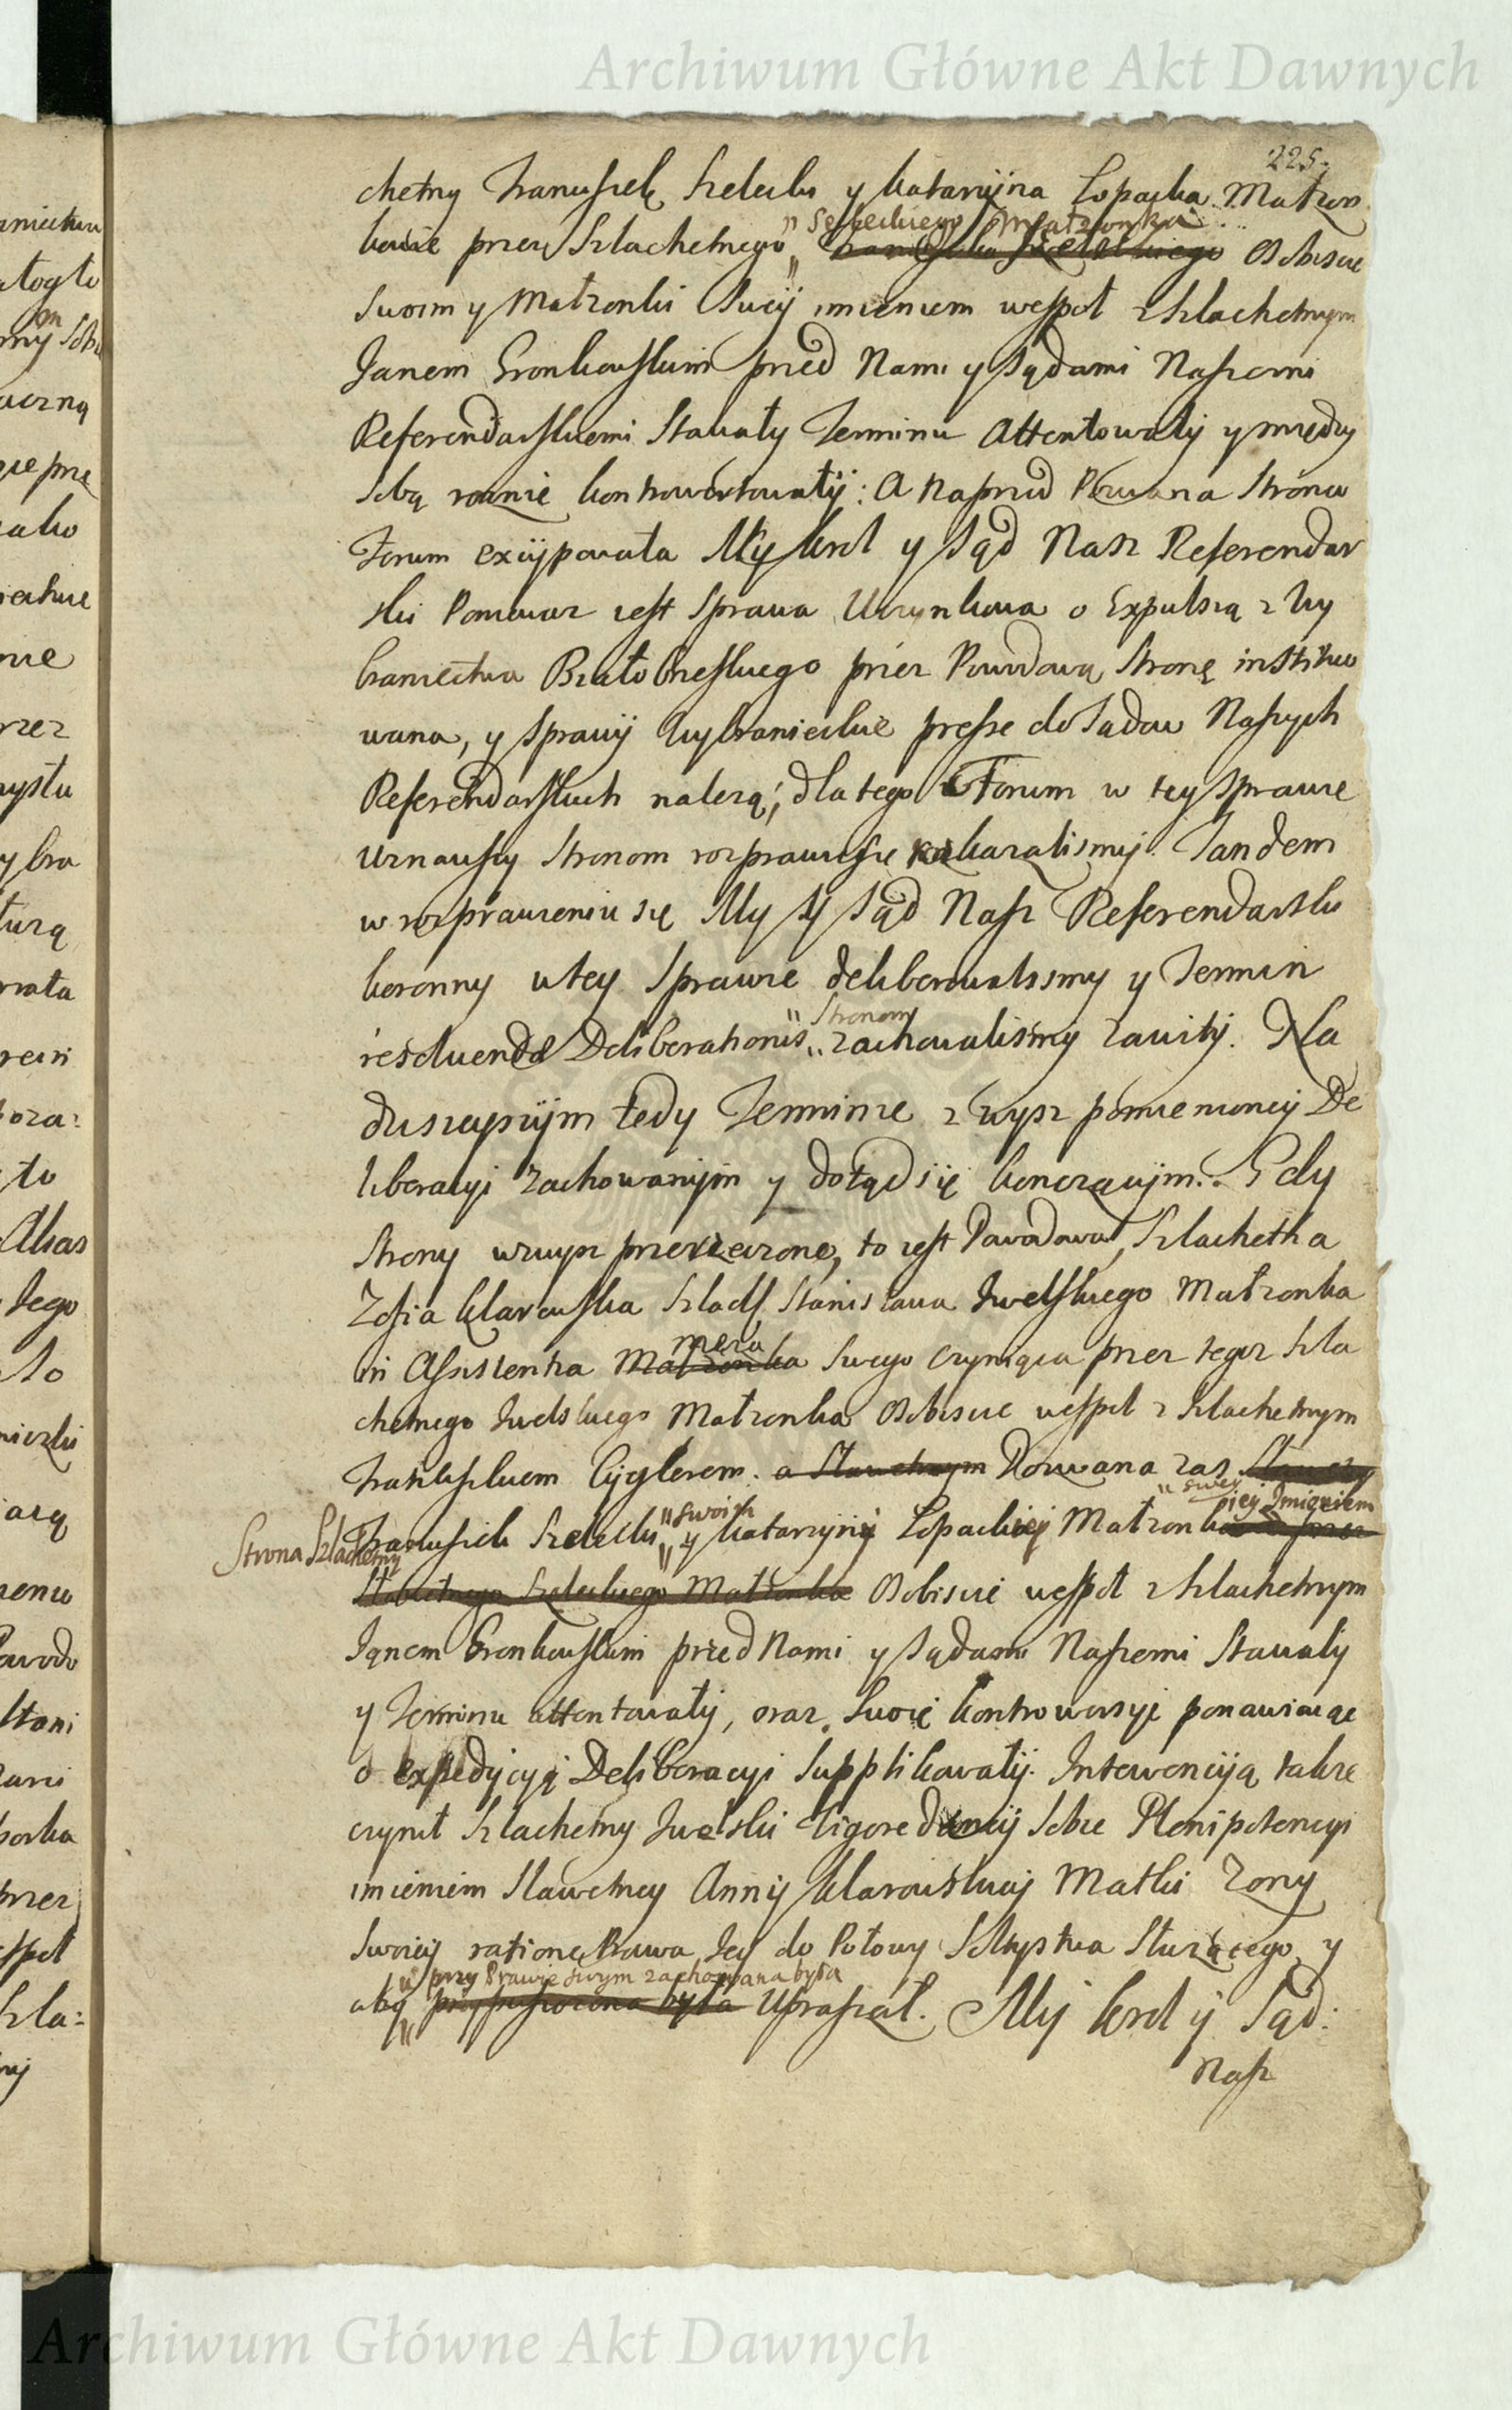 Archiwum Główne Akt Dawnych
225.
chetny Franciszek Szelecki y Katarzyna Łopacka Małzon
" Szeleckiego Małzonka
kowie przez Szlachetnego Franciszka Szeleckiego Osobiscie
swoim y Małzonki swey imieniem wespoł z Szlachetnym
Janem Gronkowskim przed Nami y Sądami Naszemi
Referendarskiemi Stawały Terminu Attentowały y między
sobą roznie kontrowertowały: A naprzod Pozwana Strona
Forum excypowała My Krol y Sąd Nasz Referendar
ski Poniewaz iest Sprawa Uczynkowa o Expulsyą z Wy
braniectwa Białobrzeskiego przez Powodową Stronę institwo
wana, y Sprawy Wybranieckie prosze do Sądow Naszych
Referendarskich nalezą; dla tego Forum w tey Sprawie
uznawszy Stronom rozprawić się kazalismy. Tandem
w rozprawieniu się My Sąd Nasz Referendarski
Koronny w tey Sprawie deliberowalismy y Termin
" Stronom
resolvendæ Deliberationis zachowalismy zawity. Na
dzisieyszym tedy Terminie z wysz pomienioney De
liberacyi zachowanym y dotąd się konczącym. Gdy
Strony wzwysz przerzeczone, to iest Powodowa Szlachetna
Zofia Klarowska Szlach Stanisława Iwelskiego Małzonka
męża
in Assistentia Małzonka swego czyniąca przez tegoz Szla
chetnego Iwelskiego Małzonka Osobiscie wespoł z Szlachetnym
Franciszkiem Cyglerem. a Sławetnym Pozwana zas
" swey
" swoim
iey Imieniem
Strona Szlachetny
Franciszek Szelecki y Katarzyny Łopackiey Małzonki
Szlachetnego Szeleckiego Małzonka Osobiscie wespoł z Szlachetnym
Janem Gronkowskim przed Nami y Sądami Naszemi Stawały
y Terminu attentowały, oraz swoie kontrowersye ponawiaiąc
o expedycyą Deliberacyi supplikowały. Interwencyą takze
czynił Szlachetny Iwelski vigore daney sobie Plenipotencyi
imieniem Sławetney Anny Klarowskiey Matki Zony
swoiey ratione Prawa Iey do Połowy Sołtystwa słuzącego y
" przy Prawie swym zachowana była
aby przypuszczona była Upraszał. My Krol y Sąd:
Nasz
Archiwum Główne Akt Dawnych